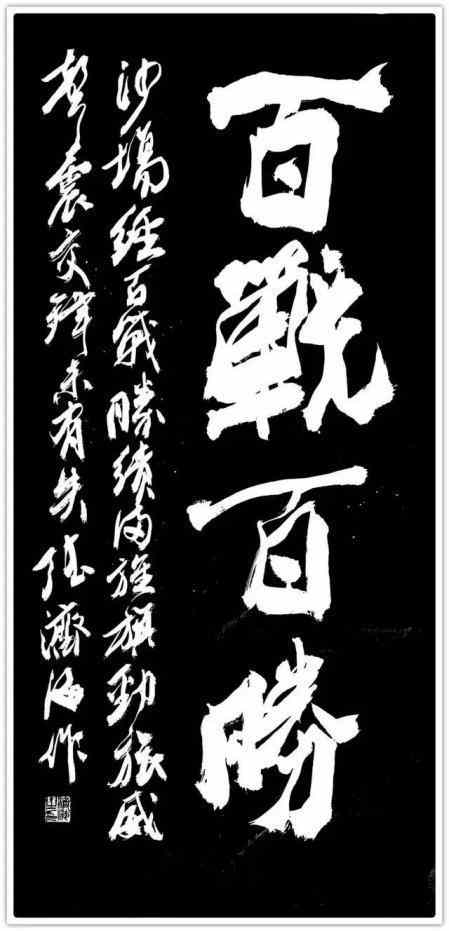 百戰百勝
沙場經百戰勝績滿旌旗勁旅威
聲震交鋒未有失張濟海作